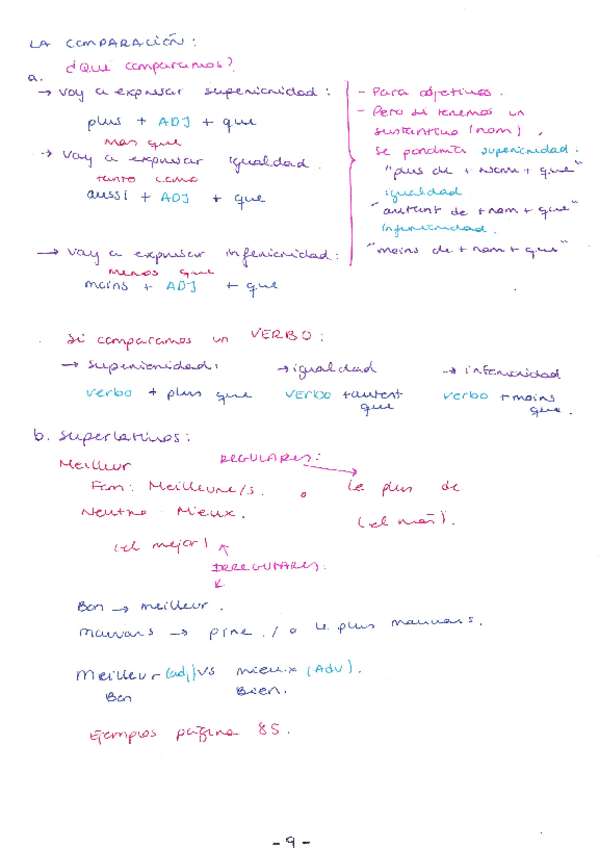 LA COMPARACIÓN:
a. ¿Qué comparamos?
→ voy a expresar superioridad:
plus + ADJ + que
mas que
→ voy a expresar igualdad.
tanto como
aussi + ADJ + que
→ voy a expresar inferioridad:
menos que
moins + ADJ + que
- Para adjetivos.
- Pero si tenemos un
sustantivo (nom),
se pondrá superioridad:
"plus de + nom + que"
igualdad
"autant de + nom + que"
inferioridad.
"moins de + nom + que"
Si comparamos un VERBO:
→ superioridad: → igualdad → inferioridad
verbo + plus que verbo + autant que verbo + moins que.
b. Superlativos:
Meilleur REGULARES:
Fem: Meilleure/s. o le plus de
Neutro Mieux. (el mas).
(el mejor)
IRREGULARES:
Bon → meilleur.
mauvais → pire / o le plus mauvais.
Meilleur (adj) vs mieux (Adv).
Bon Bien.
Ejemplos página 85.
- 9 -